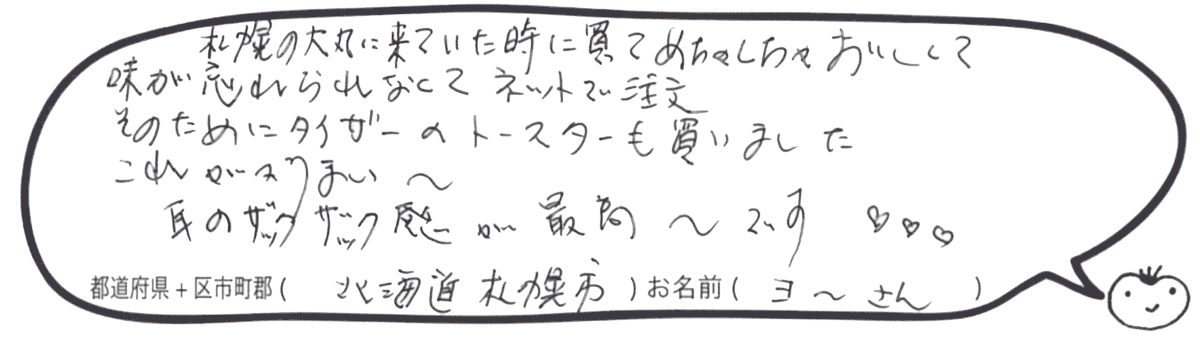 札幌の大丸に来ていた時に買てめちゃしちゃおいしくて
味が忘れられなくてネットで注文
そのためにタイガーのトースターも買いました
これが又うまい〜
耳のザックザック感が最高〜です♡♡♡
都道府県+区市町郡(北海道札幌市)お名前(ヨ〜さん)